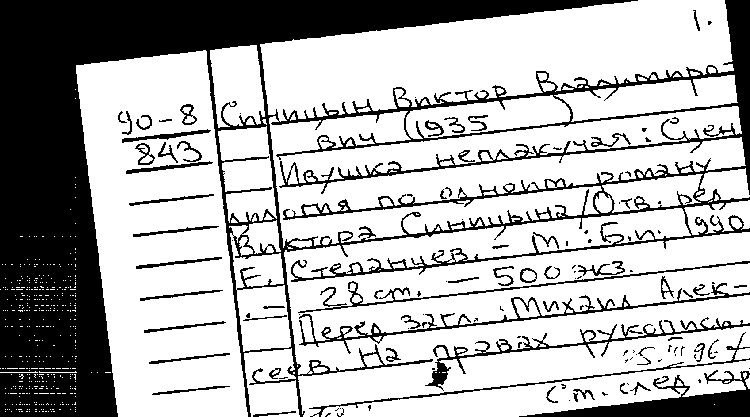 1.
90-8 Синицын, Виктор Владимиро-
843 вич (1935 )
Ивушка неплакучая: Сцен.
дилогия по одноим. роману
Виктора Синицына/Отв. ред.
Е. Степанцев. - М.: Б.и., 1990
. - 28 ст. - 500 экз.
Перед загл.: Михаил Алек-
сеев. На правах рукописи.
См. след. кар